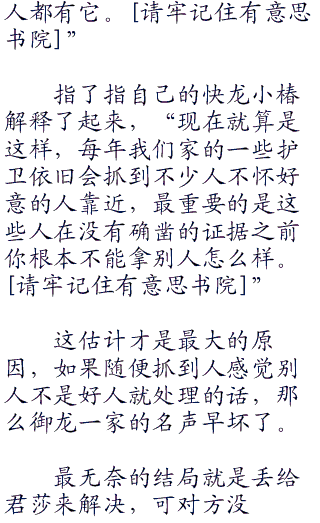 人都有它。[请牢记住有意思
书院]”
指了指自己的快龙小椿
解释了起来，“现在就算是
这样，每年我们家的一些护
卫依旧会抓到不少人不怀好
意的人靠近，最重要的是这
些人在没有确凿的证据之前
你根本不能拿别人怎么样。
[请牢记住有意思书院]”
这估计才是最大的原
因，如果随便抓到人感觉别
人不是好人就处理的话，那
么御龙一家的名声早坏了。
最无奈的结局就是丢给
君莎来解决，可对方没